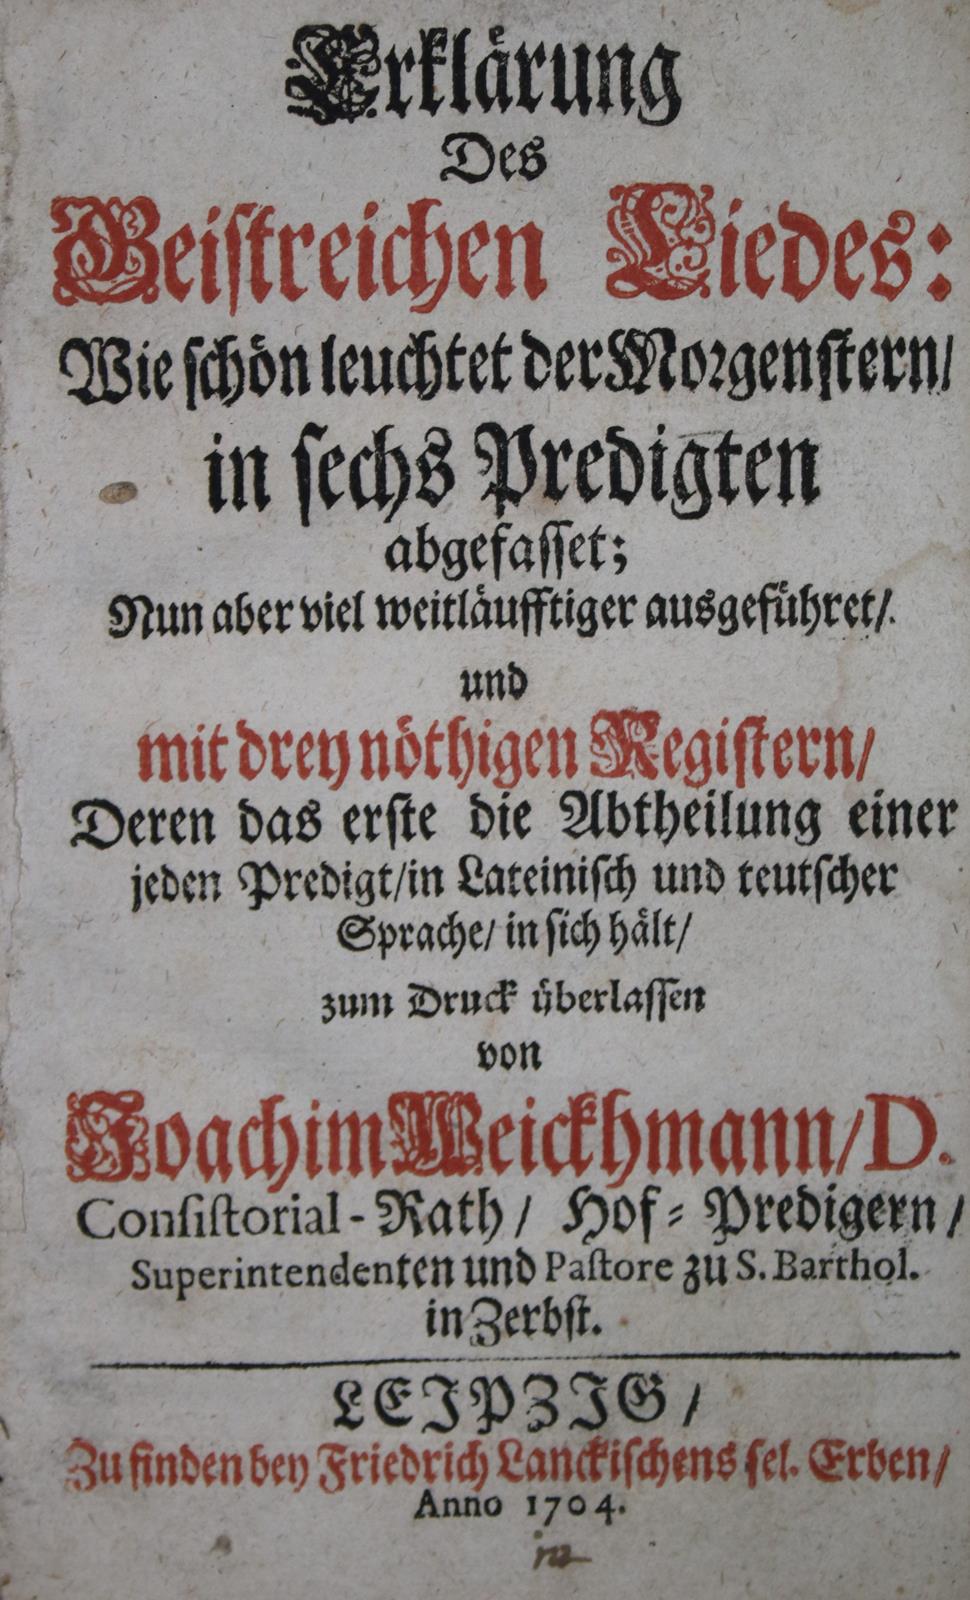 Erklärung
Des
Geiſtreichen Liedes:
Wie ſchön leuchtet der Morgenſtern/
in ſechs Predigten
abgefaſſet;
Nun aber viel weitläufftiger ausgeführet/.
und
mit drey nöthigen Regiſtern/
Deren das erſte die Abtheilung einer
jeden Predigt/in Lateiniſch und teutſcher
Sprache/ in ſich hält/
zum Druck überlaſſen
von
Joachim Weickhmann/D.
Conſiſtorial-Rath/ Hof-Predigern/
Superintendenten und Paſtore zu S. Barthol.
in Zerbſt.
LEIPZIG/
Zu finden bey Friedrich Lanckiſchens ſel. Erben/
Anno 1704.